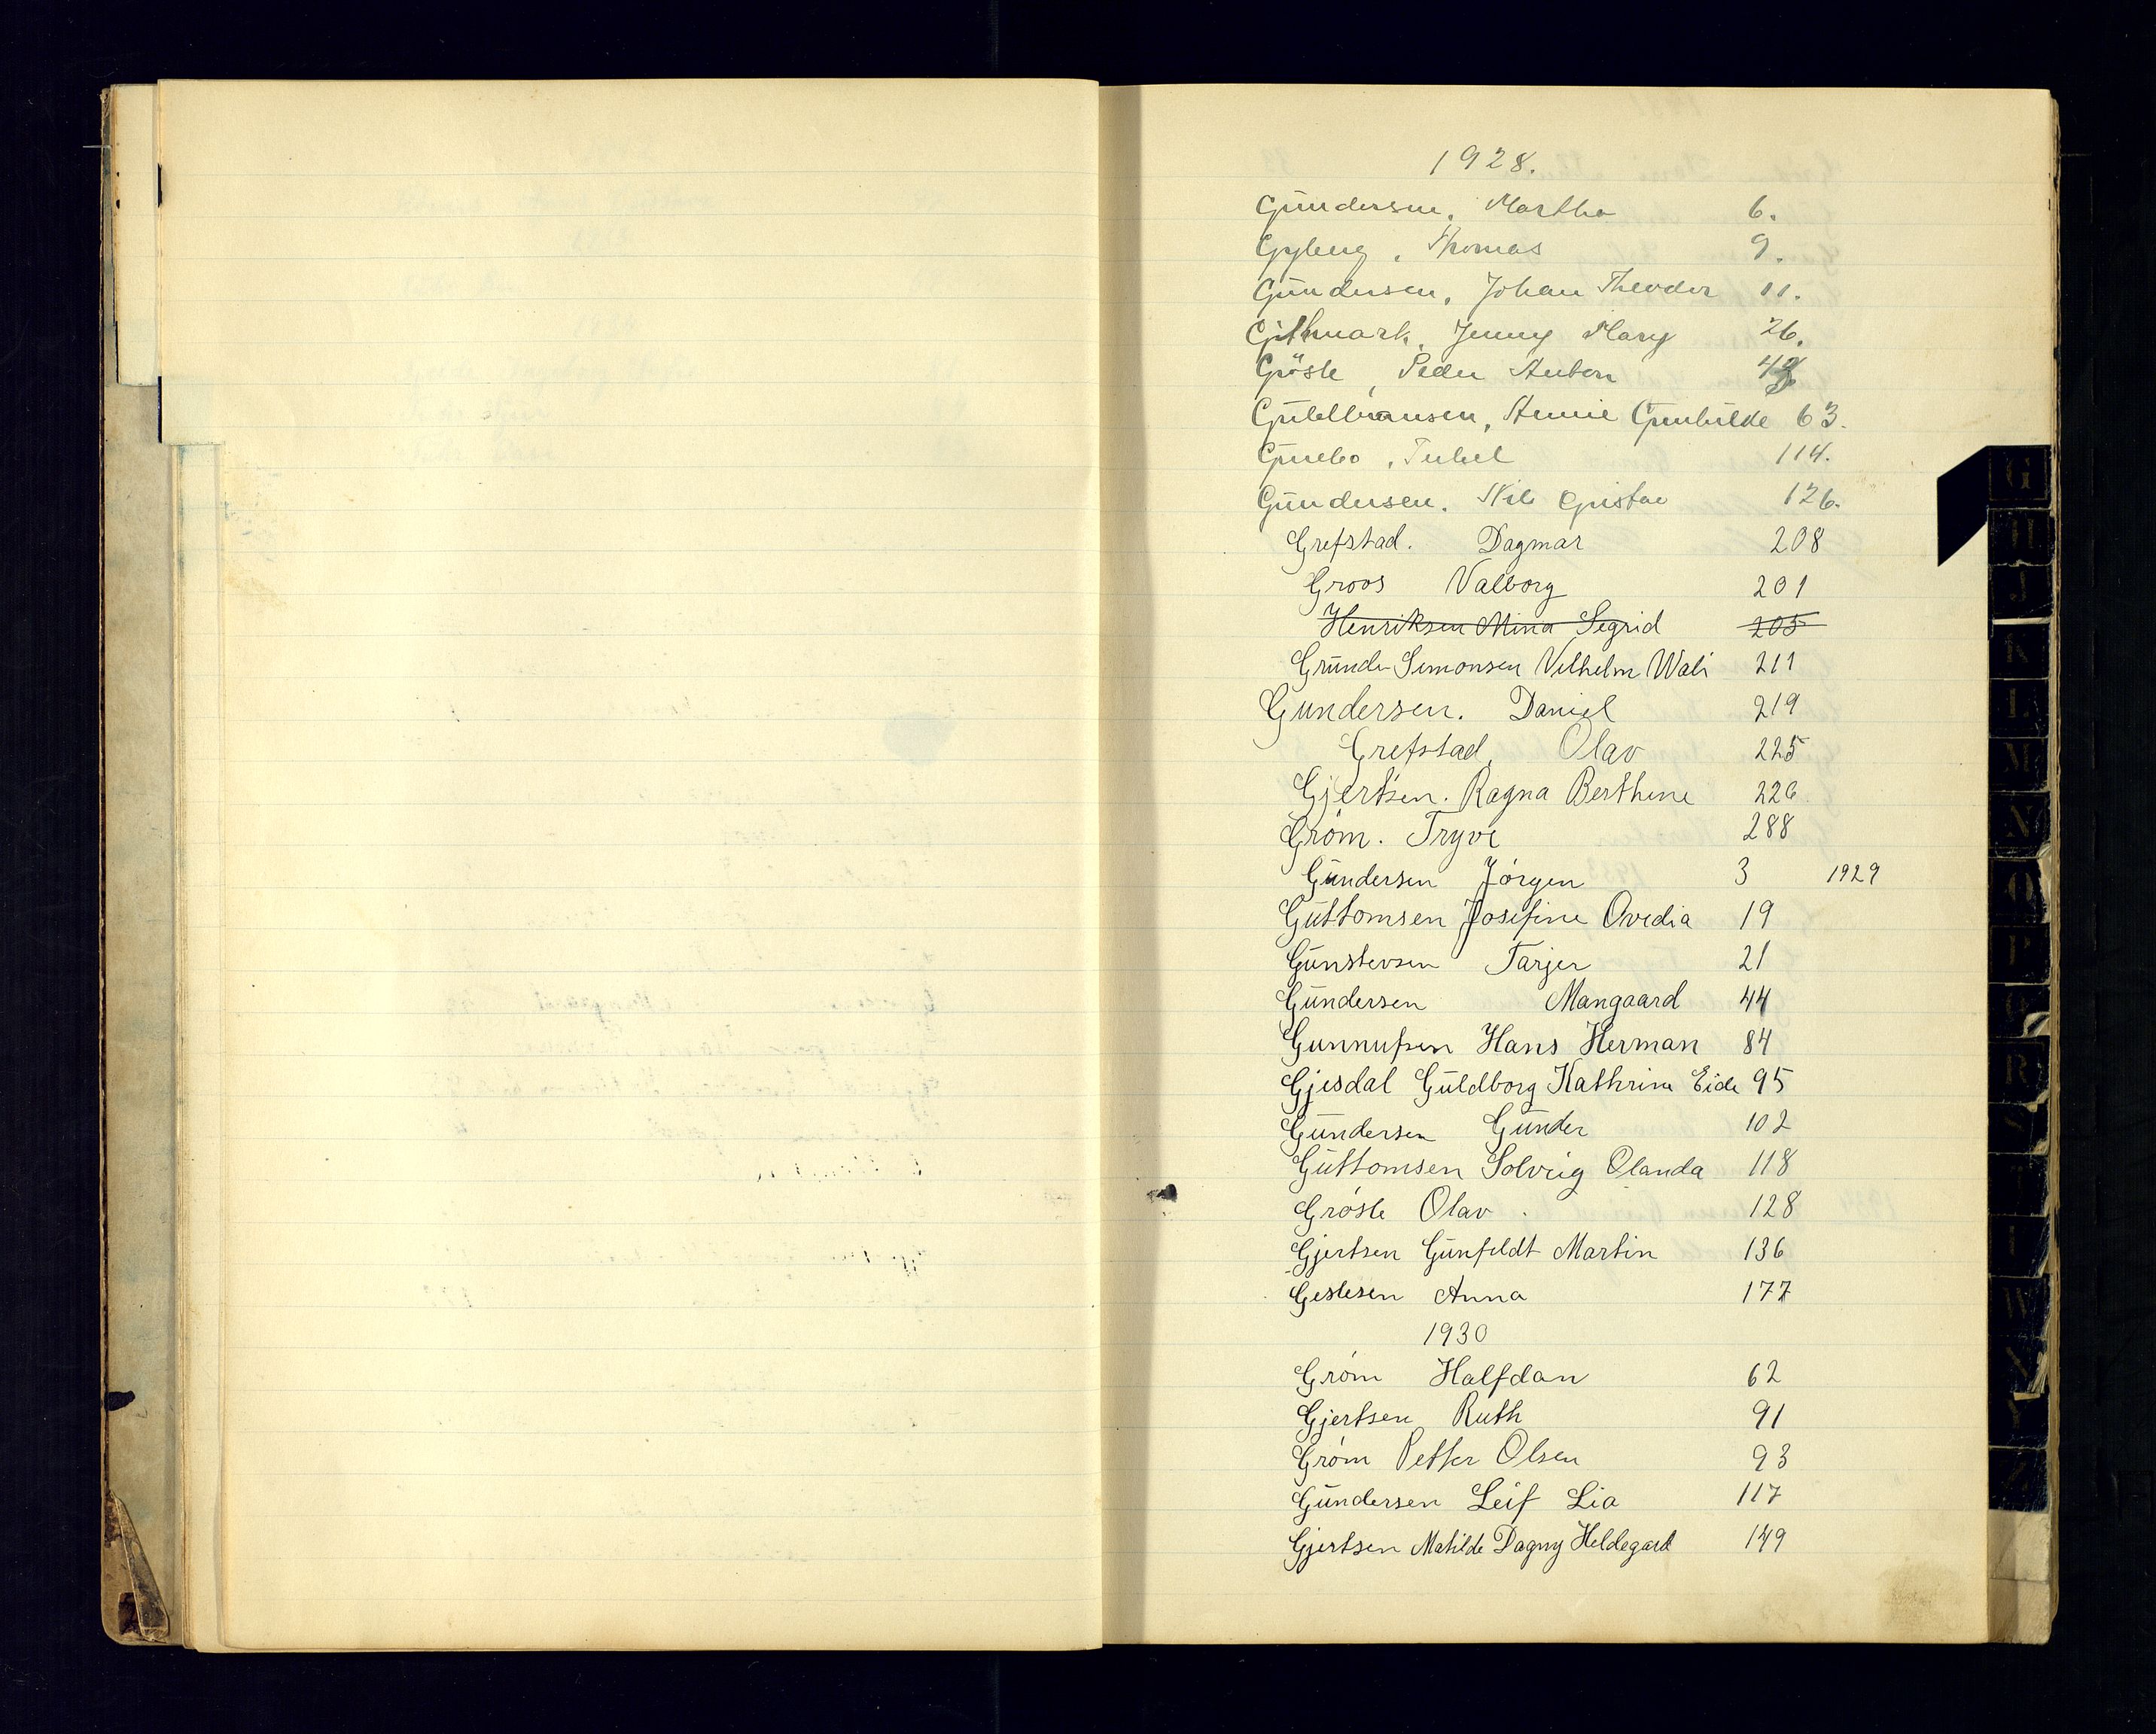 1928.
Gundersen, Martha 6.
Gyberg, Thomas 9.
Gundersen, Johan Theodor 11.
Githmark, Jenny Mary 26.
Grösle, Peder Anton
Guldbransen, Annie Gunhilde 63.
Gunebo, 114.
Gundersen. Nils Gustav 126.
Grefstad. Dagmar 208
Groos Valborg 201
Henriksen Mina Segrid 205
Grunde Simonsen Vilhelm Wali 211
Gundersen. Daniel 219
Grefstad, Olav 225
Gjertsen. Ragna Berthine 226
Gróm. Tryve 288
Gundersen Jórgen 3 1929
Guttomsen Josefine Ovedia 19
Gunstevsen Tarjer 21
Gundersen Mangaard 44
Gunnufsen Hans Herman 84
Gjesdal Guldborg Kathrine Eide 95
Gundersen Gunder 102
Guttomsen Solveig Olanda 118
Grósle Olav 128
Gjertsen Gunfeldt Martin 136
Geslesen Anna 177
1930
Gróm Halfdan 62
Gjertsen Ruth 91
Gróm Petter Olsen 93
Gundersen Leif Lia 117
Gjertsen Matilde Dagny Heldegard 149
G
H
J
K
L
M
N
O
P
R
W